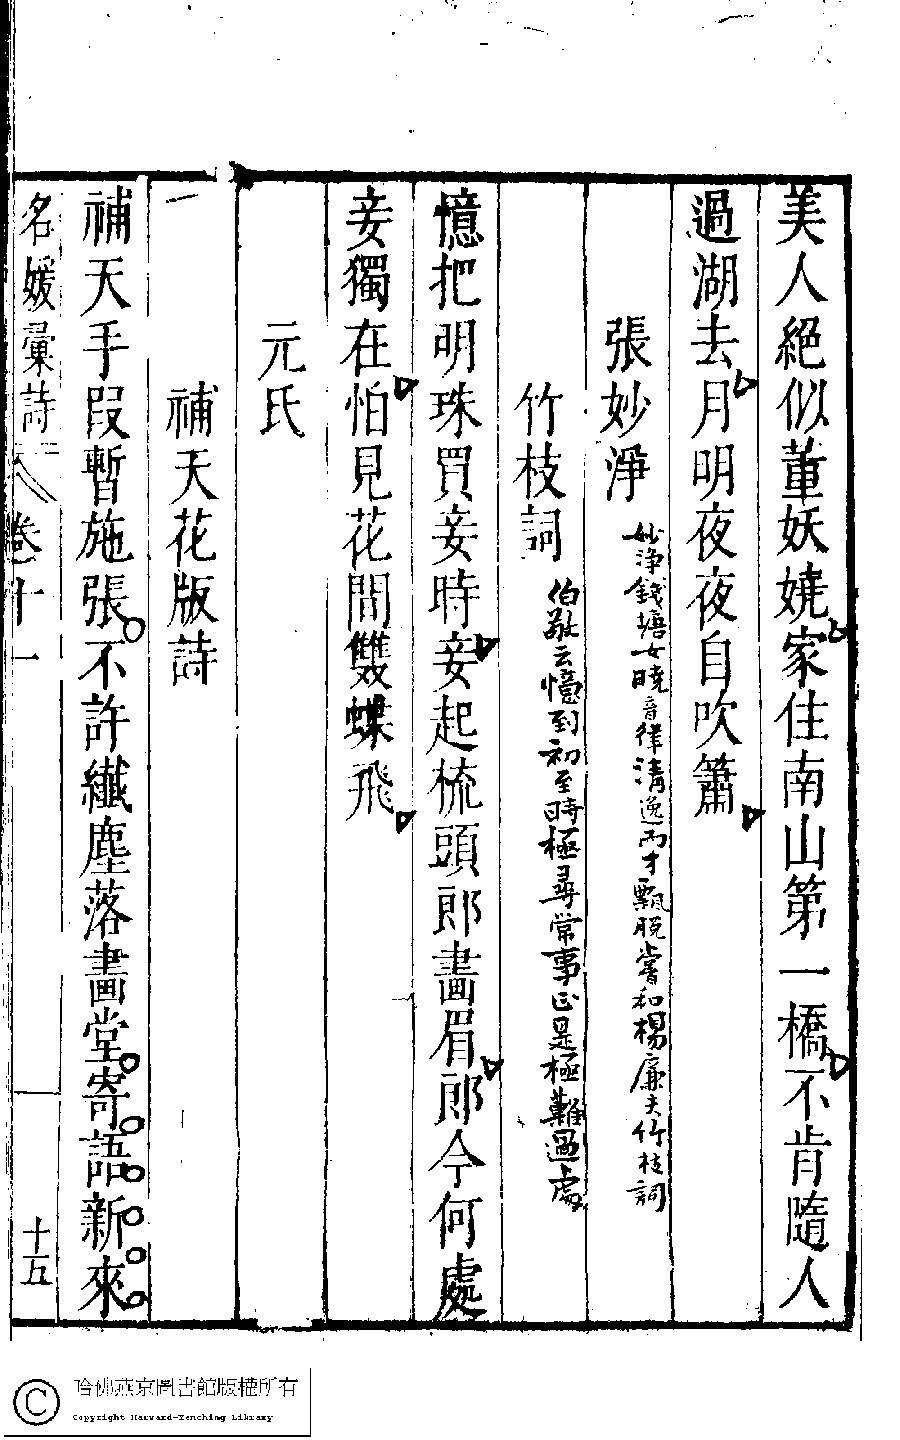 美人絕似董妖嬈家住南山第一橋不肯隨人
過湖去月明夜夜自吹簫
張妙淨
妙淨錢塘女曉音律淸逸而才飄脫嘗和楊廉夫竹枝詞
竹枝詞
伯敬云憶到初至時極尋常事正是極難過處
憶把明珠買妾時妾起梳頭郎畫眉郎今何處
妾獨在怕見花間雙蝶飛
元氏
補天花版詩
補天手叚暫施張不許纖塵落畫堂寄語新來
名媛彙詩
卷十一
十五
哈佛燕京圖書館版權所有
Copyright Harvard-Yenching Library